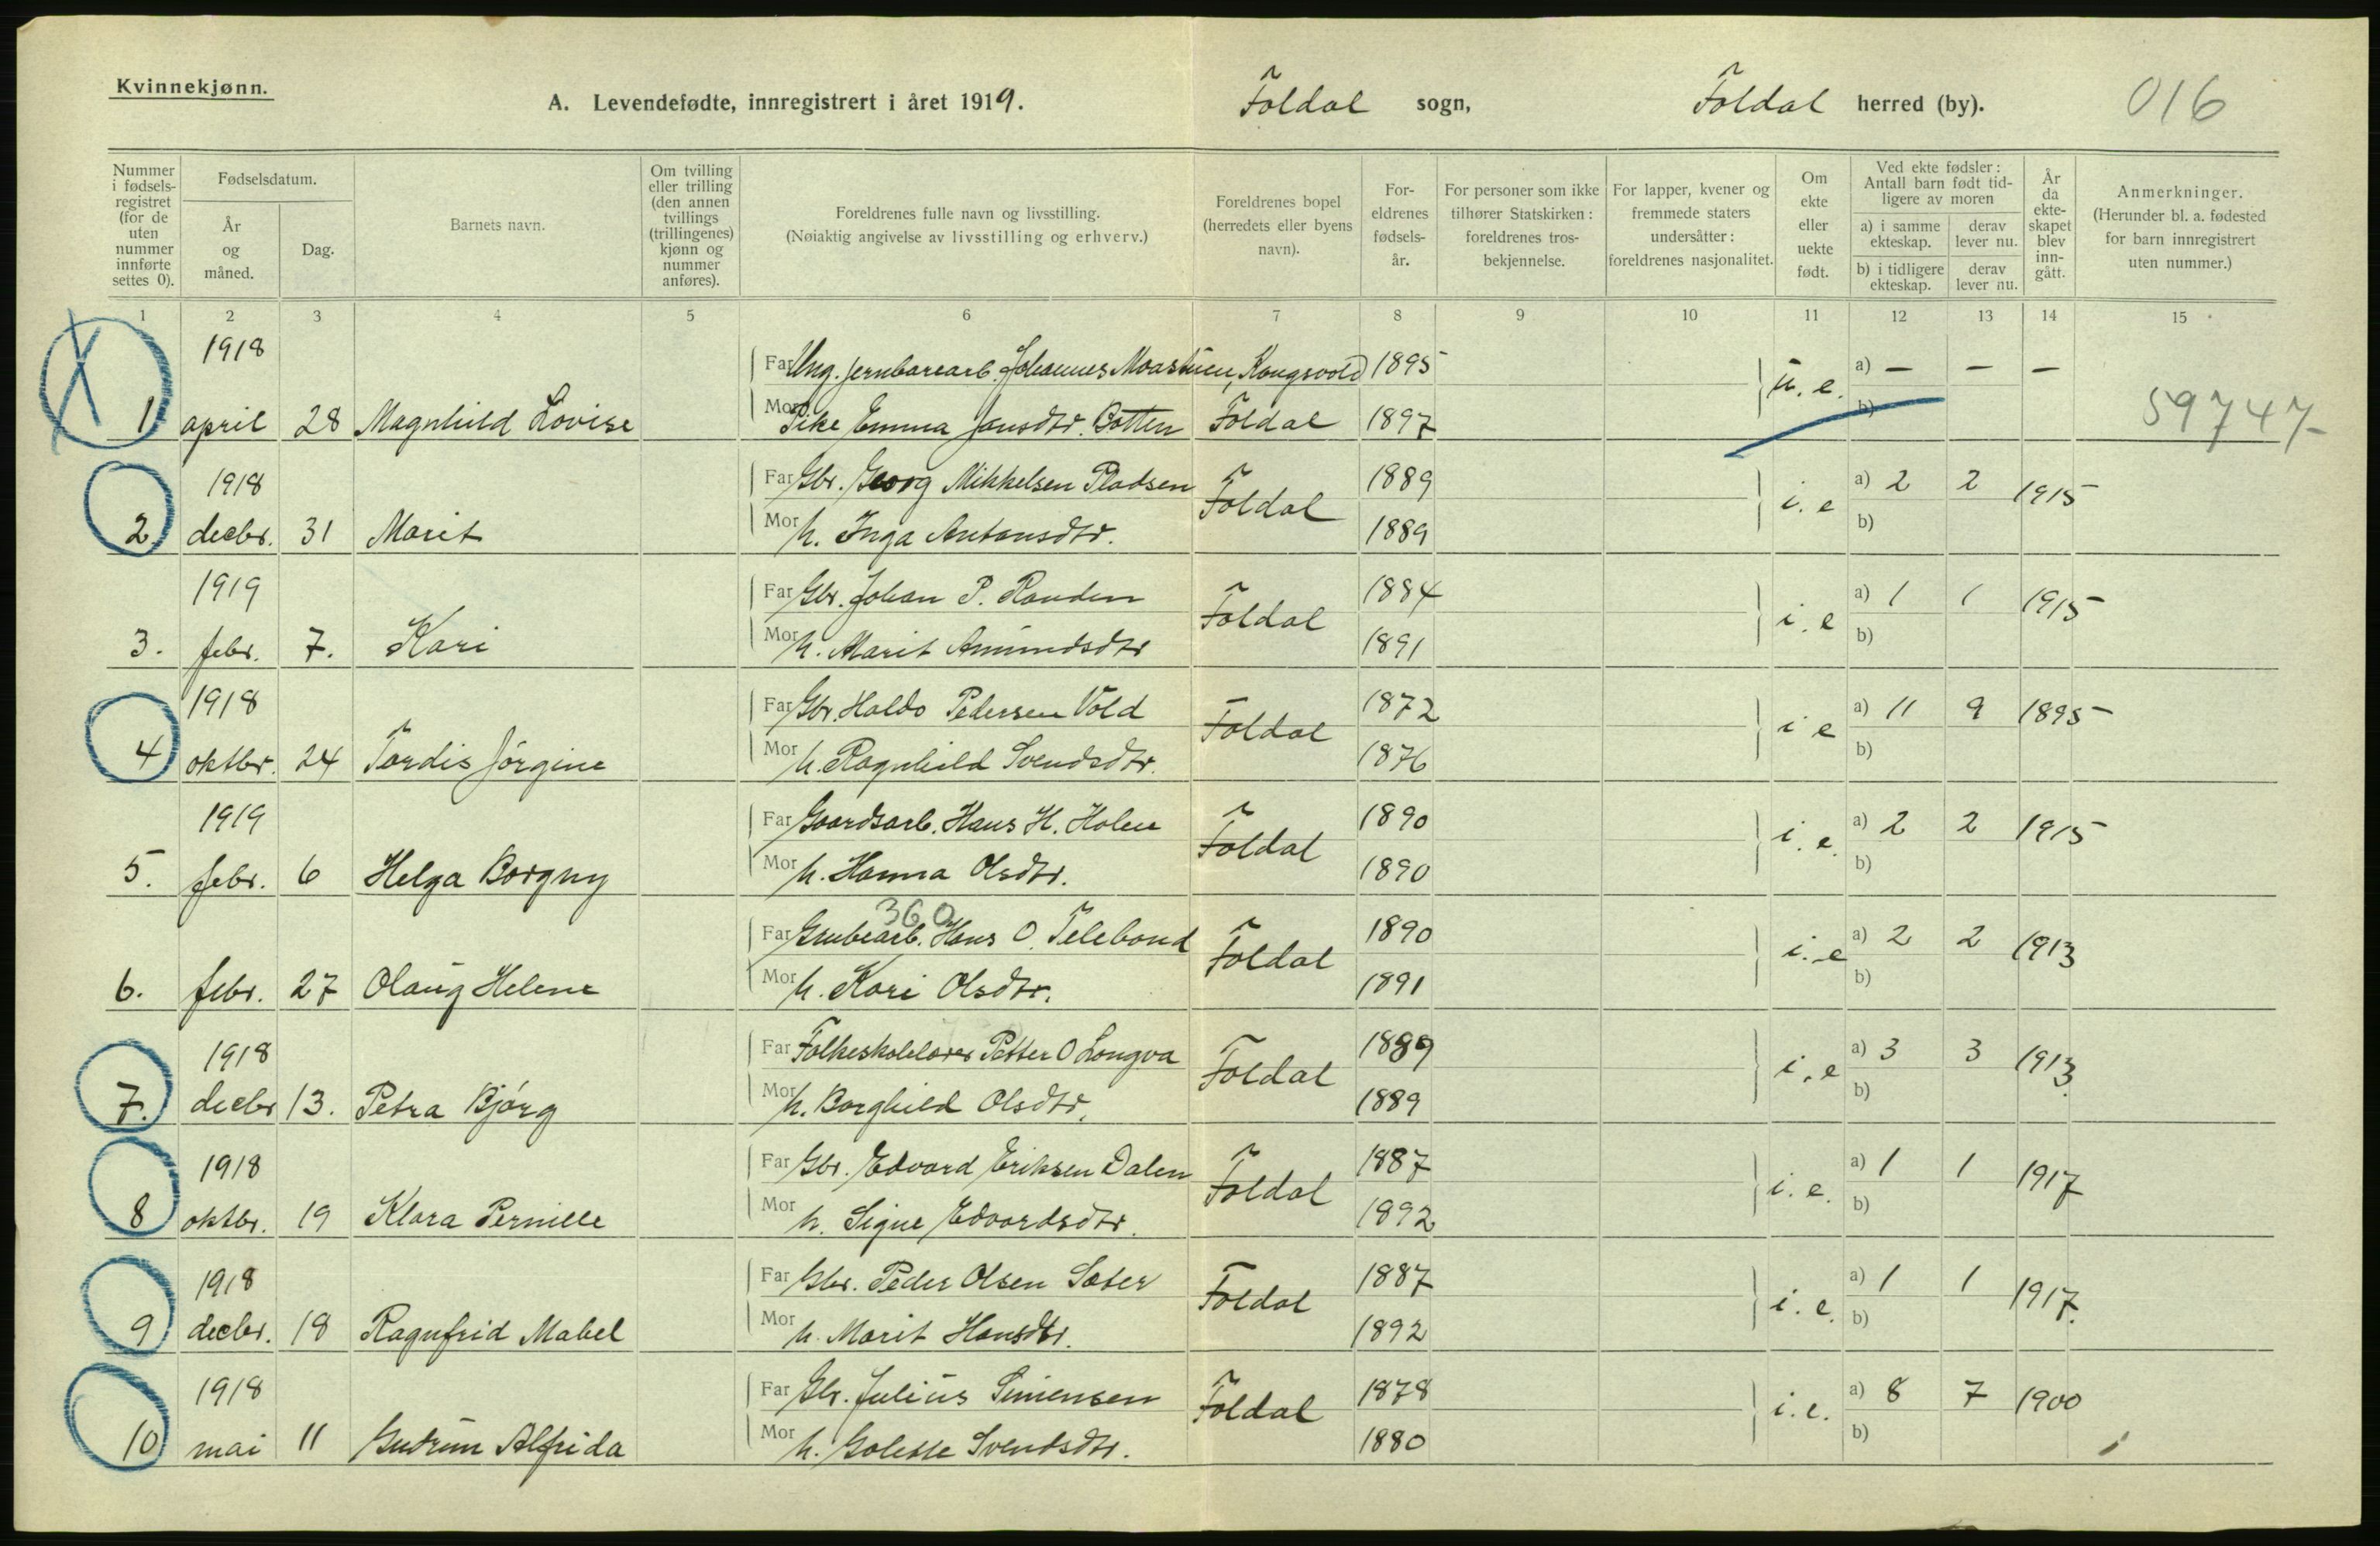 Kvinnekjønn.
A. Levendefødte, innregistrert i året 1919.
Foldal sogn,
Foldal herred (by).
016
Nummer i fødsels-registret (for de uten nummer innførte settes 0).
Fødselsdatum.
År og måned.
Dag.
Barnets navn.
Om tvilling eller trilling (den annen tvillings (trillingenes) kjønn og nummer anføres).
Foreldrenes fulle navn og livsstilling.
(Nøiaktig angivelse av livsstilling og erhverv.)
Foreldrenes bopel (herredets eller byens navn).
For-eldrenes fødsels-år.
For personer som ikke tilhører Statskirken: foreldrenes tros-bekjennelse.
For lapper, kvener og fremmede staters undersåtter: foreldrenes nasjonalitet.
Om ekte eller uekte født.
Ved ekte fødsler: Antall barn født tid-ligere av moren
a) i samme ekteskap.
derav lever nu.
b) i tidligere ekteskap.
derav lever nu.
År da ekte-skapet blev inn-gått.
Anmerkninger.
(Herunder bl. a. fødested for barn innregistrert uten nummer.)
1 2 3 4 5 6 7 8 9 10 11 12 13 14 15
1918 Far Ung. jernbanearb. Johannes Moastuen, Kongsvold 1895 u. e. a) — — —
1 april 28 Magnhild Lovise Mor Pike Emma Jonsdtr. Botten Foldal 1897 b) 59747
1918 Far Gbr. Georg Mikkelsen Pladsen Foldal 1889 i. e a) 2 2 1915
2. decbr. 31 Marit Mor h. Inga Antonsdtr. 1889 b)
1919 Far Gbr. Johan P. Randen Foldal 1884 i. e a) 1 1 1915
3. febr. 7. Kari Mor h. Marit Amundsdtr 1891 b)
1918 Far Gbr. Haldo Pedersen Vold Foldal 1872 i e a) 11 9 1895
4 oktbr. 24 Tordis Jørgine Mor h. Ragnhild Svendsdtr. 1876 b)
1919 Far Gaardsarb. Hans H. Holen Foldal 1890 i. e. a) 2 2 1915
5. febr. 6 Helga Borgny Mor h. Hanna Olsdtr. 1890 b)
360
Far Grubearb. Hans O. Telebond Foldal 1890 i. e a) 2 2 1913
6. febr. 27 Olaug Helene Mor h. Kari Olsdtr. 1891 b)
1918 Far Folkeskolelærer Petter O Longva Foldal 1889 i. e a) 3 3 1913.
7. decbr 13. Petra Bjørg Mor h. Borghild Olsdtr. 1889 b)
1918 Far Gbr. Edvard Eriksen Dalen Foldal 1887 i. e. a) 1 1 1917
8 oktbr. 19 Klara Pernille Mor h. Signe Edvardsdtr. 1892 b)
1918 Far Gbr. Peder Olsen Sæter Foldal 1887 i. e. a) 1 1 1917.
9 decbr. 18 Ragnfrid Mabel Mor h. Marit Hansdtr. 1892 b)
1918 Far Gbr. Julius Simensen Foldal 1878 i. e. a) 8 7 1900
10 mai 11 Gudrun Alfrida Mor h. Svendsdtr. 1880 b)